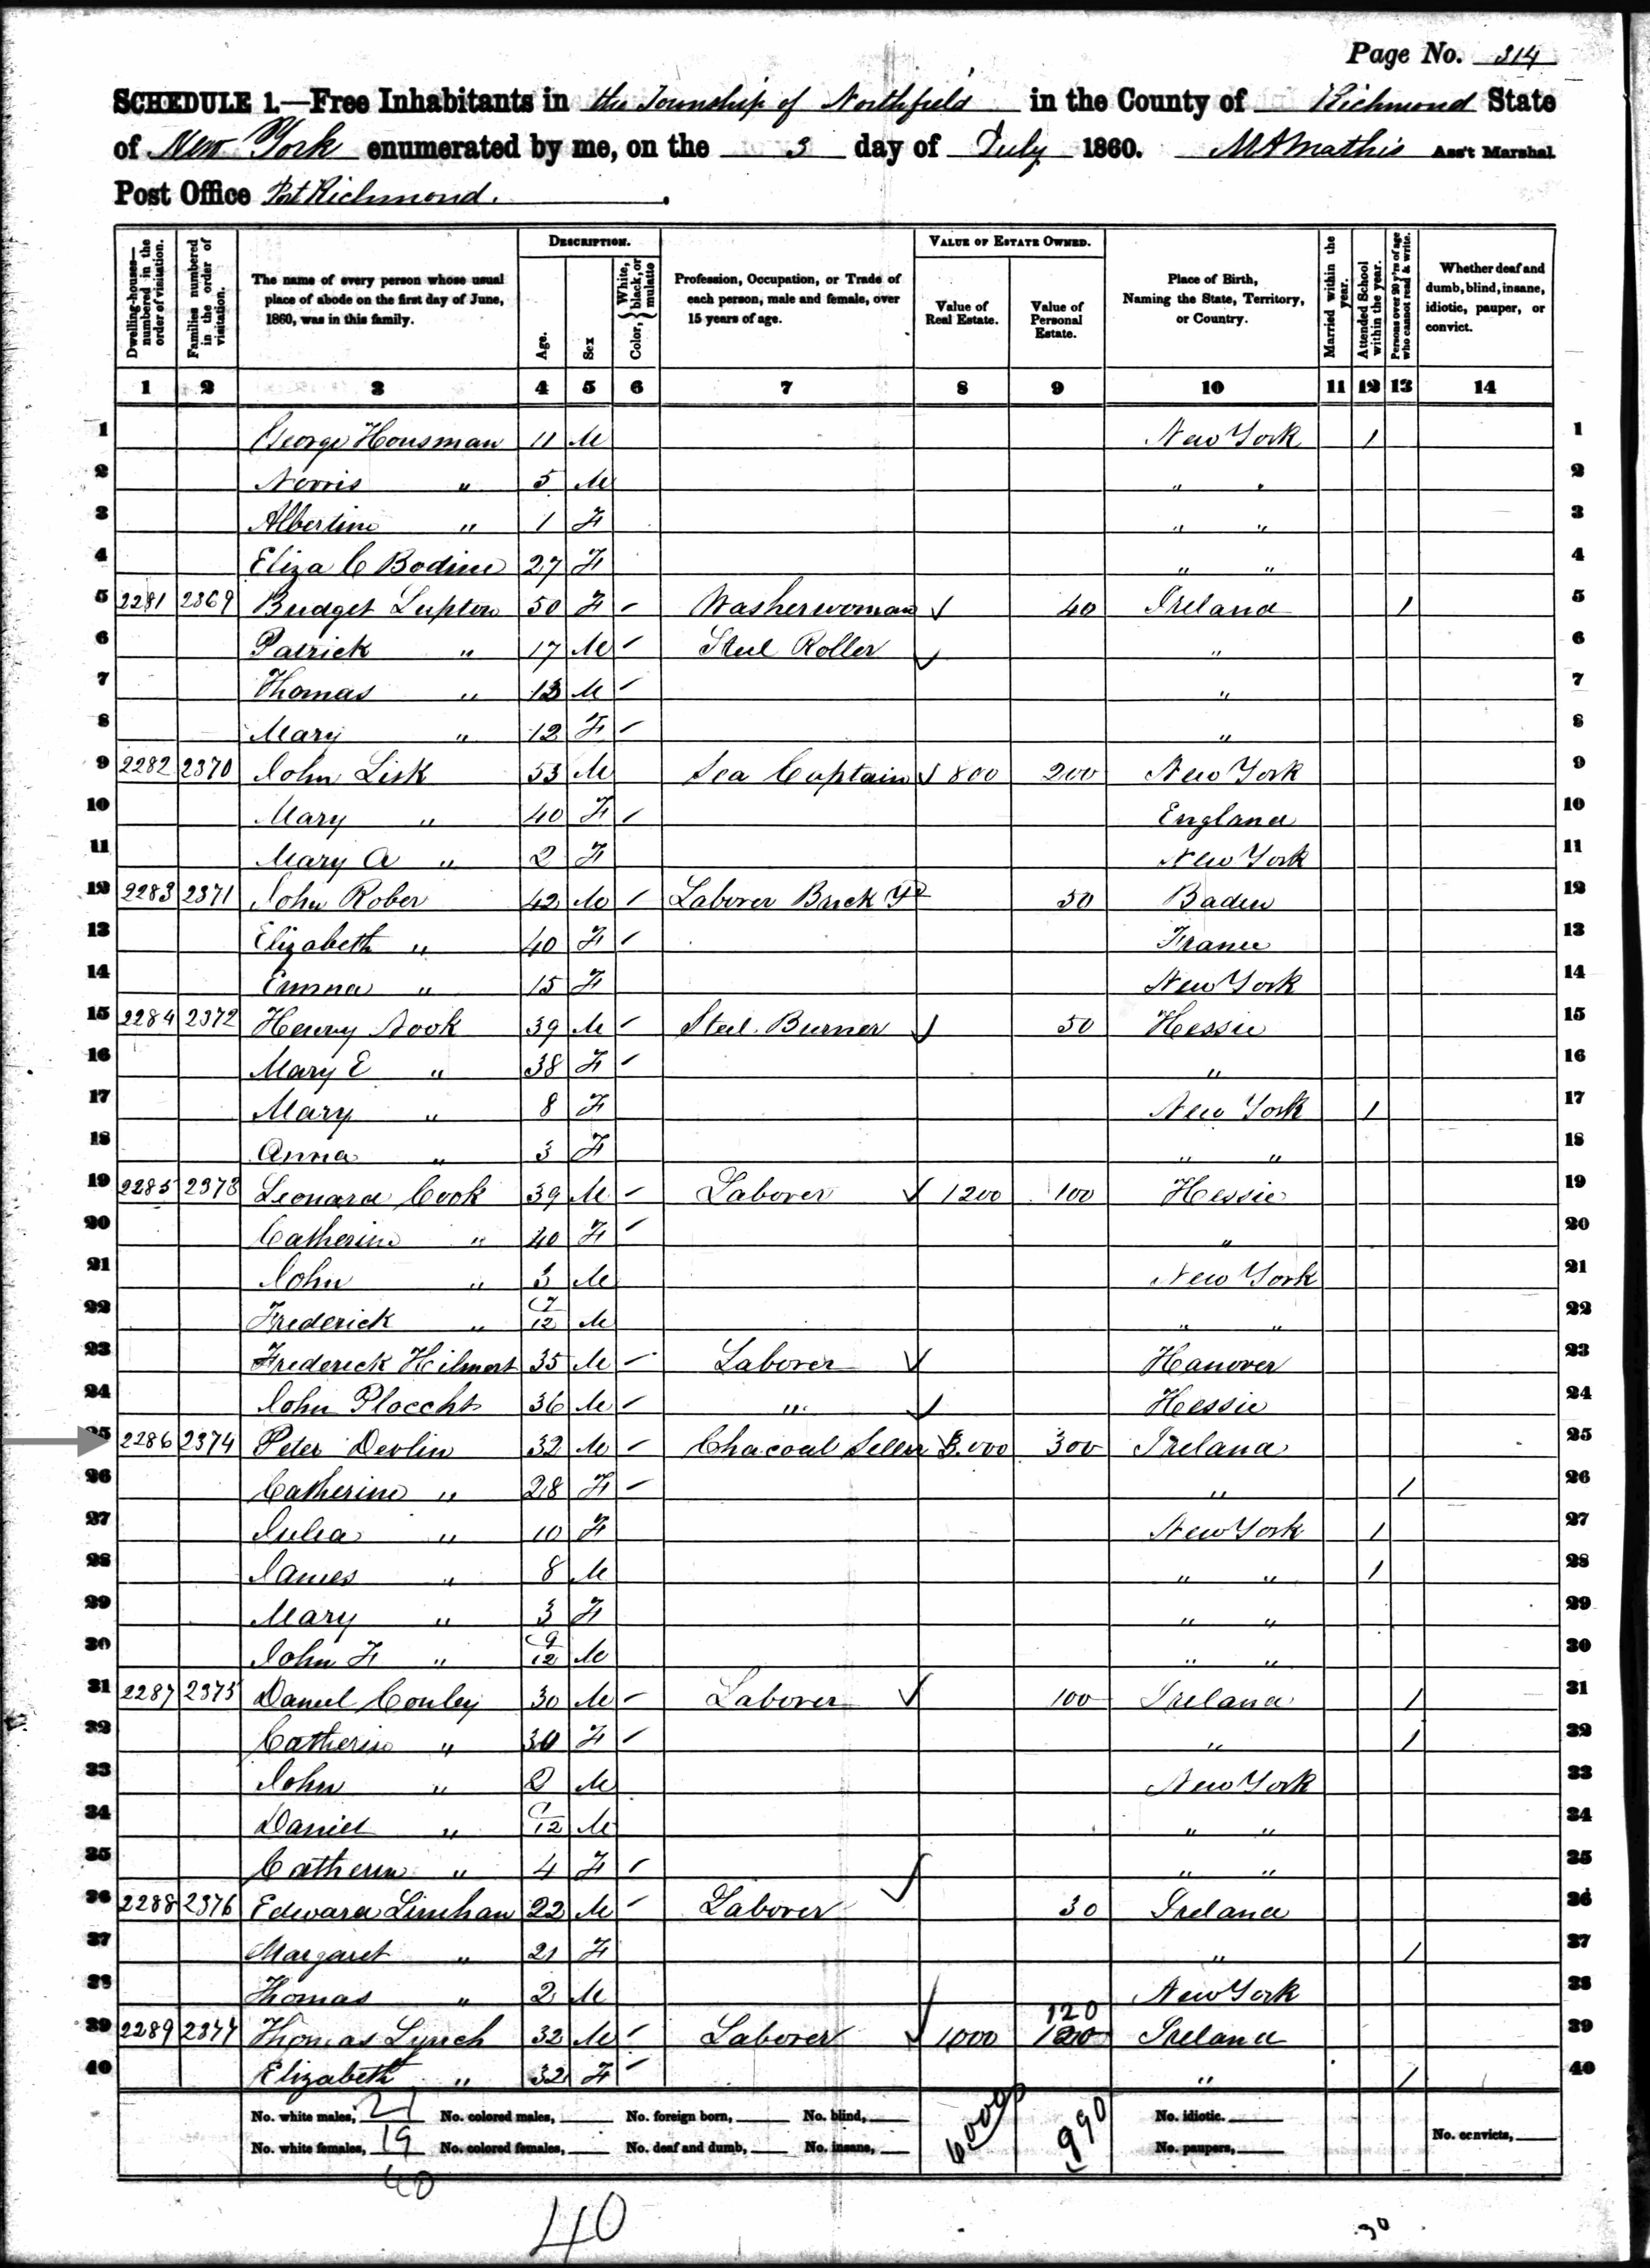 Page No. 314
SCHEDULE 1.—Free Inhabitants in the Township of Northfield in the County of Richmond State
of New York enumerated by me, on the 3 day of July 1860. Ass't Marshal.
Post Office Port Richmond.
Dwelling-houses— numbered in the order of visitation. Families numbered in the order of visitation. The name of every person whose usual place of abode on the first day of June, 1860, was in this family. DESCRIPTION. Age. Sex Color, {White, black, or mulatto Profession, Occupation, or Trade of each person, male and female, over 15 years of age. VALUE OF ESTATE OWNED. Value of Real Estate. Value of Personal Estate. Place of Birth, Naming the State, Territory, or Country. Married within the year. Attended School within the year. Persons over 20 y'rs of age who cannot read & write. Whether deaf and dumb, blind, insane, idiotic, pauper, or convict.
1 2 3 4 5 6 7 8 9 10 11 12 13 14
1 George Housman 11 M New York / 1
2 Norris " 5 M " " 2
3 Albertine " 1 F " " 3
4 Eliza C Bodine 27 F " " 4
5 2281 2369 Budget Lupton 50 F Washerwoman 40 Ireland / 5
6 Patrick " 17 M Steel Roller " 6
7 Thomas " 13 M " 7
8 Mary " 12 F " 8
9 2282 2370 John Lisk 53 M Sea Captain 800 200 New York 9
10 Mary " 40 F England 10
11 Mary A " 2 F New York 11
12 2283 2371 John Rober 42 M Laborer Brick Yd 50 Baden 12
13 Elizabeth " 40 F France 13
14 Emma " 15 F New York 14
15 2284 2372 Henry Nook 39 M Steel Burner 50 Hessie 15
16 Mary E " 38 F " 16
17 Mary " 8 F New York / 17
18 Anna " 3 F " " 18
19 2285 2373 Leonard Cook 39 M Laborer 1200 100 Hessie 19
20 Catherine " 40 F " 20
21 John " 3 M New York 21
22 Frederick " 7/12 M " " 22
23 Frederick Hilmert 35 M Laborer Hanover 23
24 John Ploecht 36 M " Hessie 24
25 2286 2374 Peter Devlin 32 M Chacoal Seller 3.000 300 Ireland 25
26 Catherine " 28 F " / 26
27 Julia " 10 F New York / 27
28 James " 8 M " " / 28
29 Mary " 3 F " " 29
30 John F " 9/12 M " " 30
31 2287 2375 Daniel Conley 30 M Laborer 100 Ireland / 31
32 Catherin " 30 F " / 32
33 John " 2 M New York 33
34 Daniel " 1/12 M " " 34
35 Catherin " 4 F " " 35
36 2288 2376 Edward Linehan 22 M Laborer 30 Ireland 36
37 Margaret " 21 F " / 37
38 Thomas " 2 M New York 38
39 2289 2377 Thomas Lynch 32 M Laborer 1,000 120 Ireland 39
40 Elizabeth " 32 F " / 40
No. white males, 21 No. colored males, No. foreign born, No. blind, No. idiotic.
No. white females, 19 No. colored females, No. deaf and dumb, No. insane, 6000 990 No. paupers, No. convicts,
40
40
30